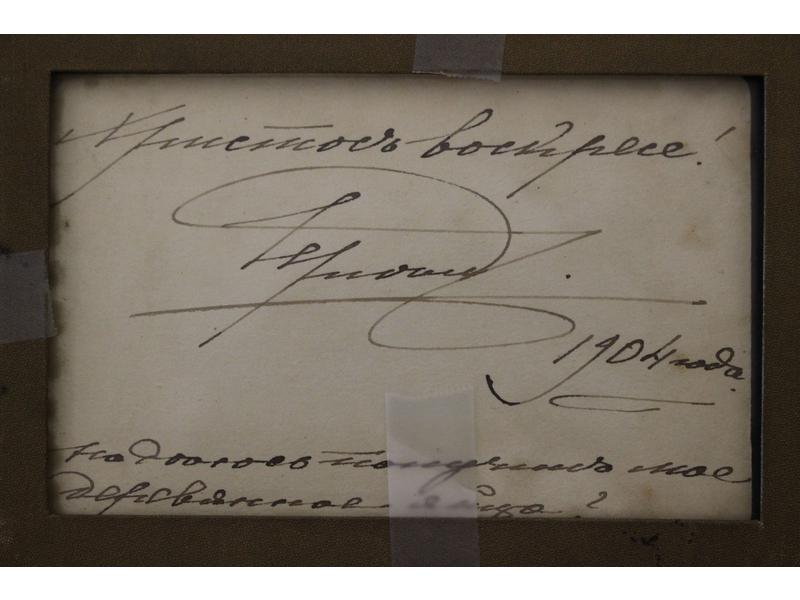 Христосъ воскресе!
1904 года.
надѣюсь получилъ мое
деревянное яйцо?